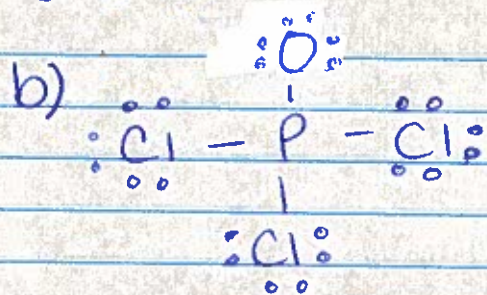 b)
O
|
Cl — P — Cl
|
Cl